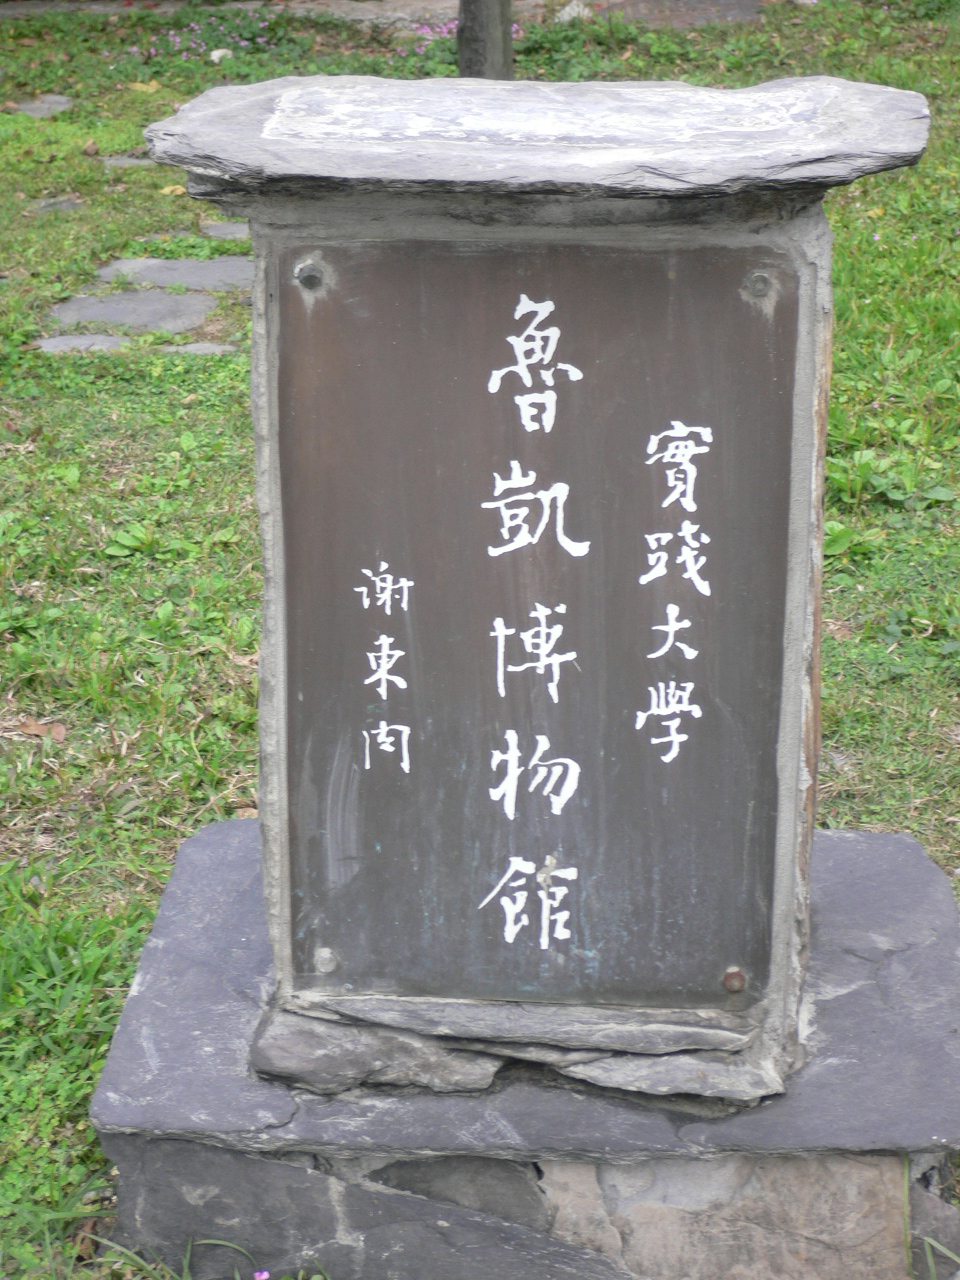 實踐大學
魯凱博物館
謝東閔